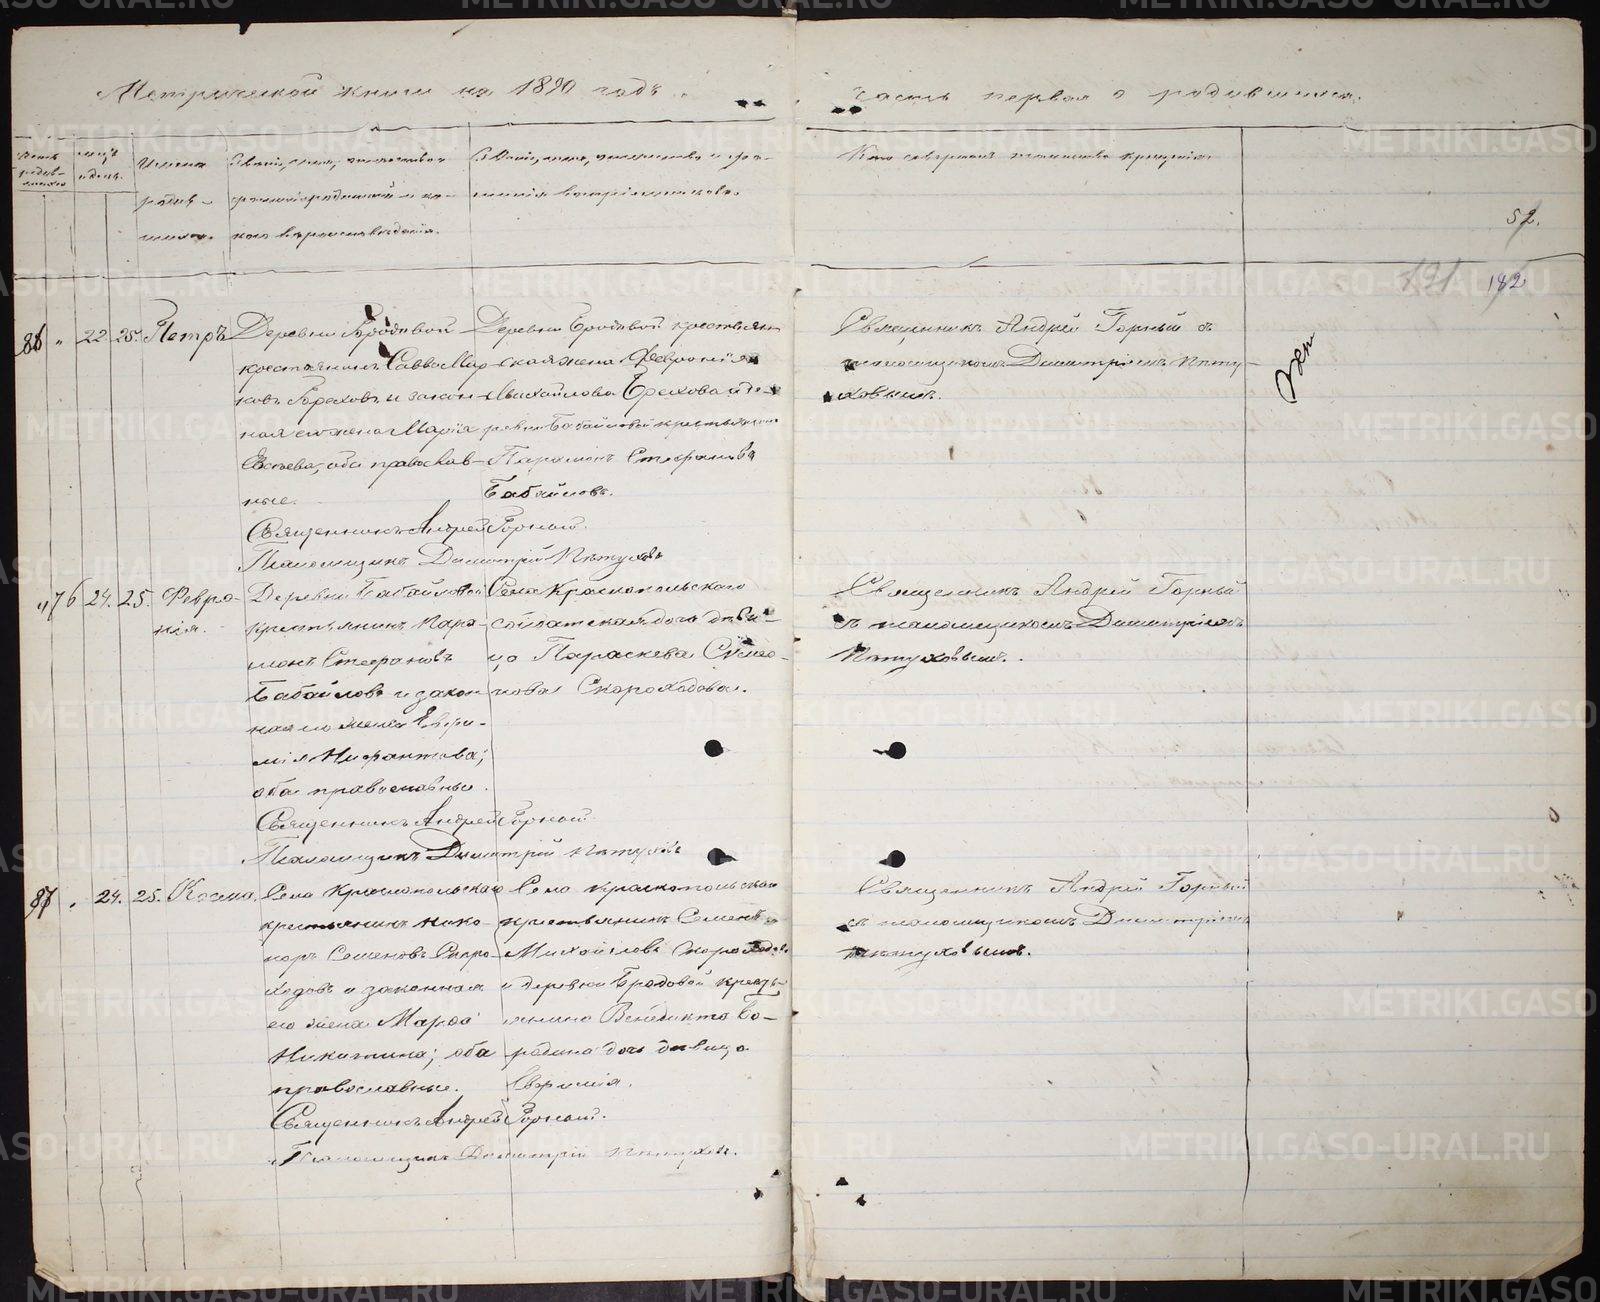 Метрической книги на 1890 годъ.
часть первая о родившихся.
Имена
родив-
шихся.
Званіе, имя, отчество и
фамилія родителей и ка-
кого вѣроисповѣданія.
Званіе, имя, отчество и фа-
милія воспріемниковъ.
Кто совершалъ таинство крещенія
52.
182
86 " 22 25. Петръ
Деревни Бродовой
крестьянинъ Савва Мар-
ковъ Гороховъ и закон-
ная его жена Марія
оба православ-
ные.
Священникъ Андрей Горный.
Псаломщикъ Димитрій Пѣтуховъ
Деревни Бродовой крестьян-
ская жена Февронія
Михайлова и де-
ревни Бабайловой крестьянинъ
Парамонъ Стефановъ
Бабайловъ.
Священникъ Андрей Горный съ
псаломщикомъ Димитріемъ Пѣту-
ховымъ.
" 76 24. 25. Февро-
нія.
Деревни Бабайловой
крестьянинъ Пара-
монъ Стефановъ
Бабайловъ и закон-
ная его жена Евфи-
мія Нифантова;
оба православные.
Священникъ Андрей Горный
Псаломщикъ Димитрій Пѣтуховъ
Села Краснопольскаго
солдатская дочь дѣви-
ца Параскева Симео-
нова Скороходова.
Священникъ Андрей Горный
съ псаломщикомъ Димитріемъ
Пѣтуховымъ.
87 " 24. 25. Косма.
Села Краснопольскаго
крестьянинъ Нико-
норъ Семеновъ Скоро-
ходовъ и законная
его жена Марѳа
Никитина; оба
православные.
Священникъ Андрей Горный.
Псаломщикъ Димитрій Пѣтуховъ.
Села Краснопольскаго
крестьянинъ Семенъ
Михайловъ Скороходовъ
и деревни Бродовой кресть-
янина Венедикта Бо-
родина дочь дѣвица
Евфимія.
Священникъ Андрей Горный
съ псаломщикомъ Димитріемъ
Пѣтуховымъ.